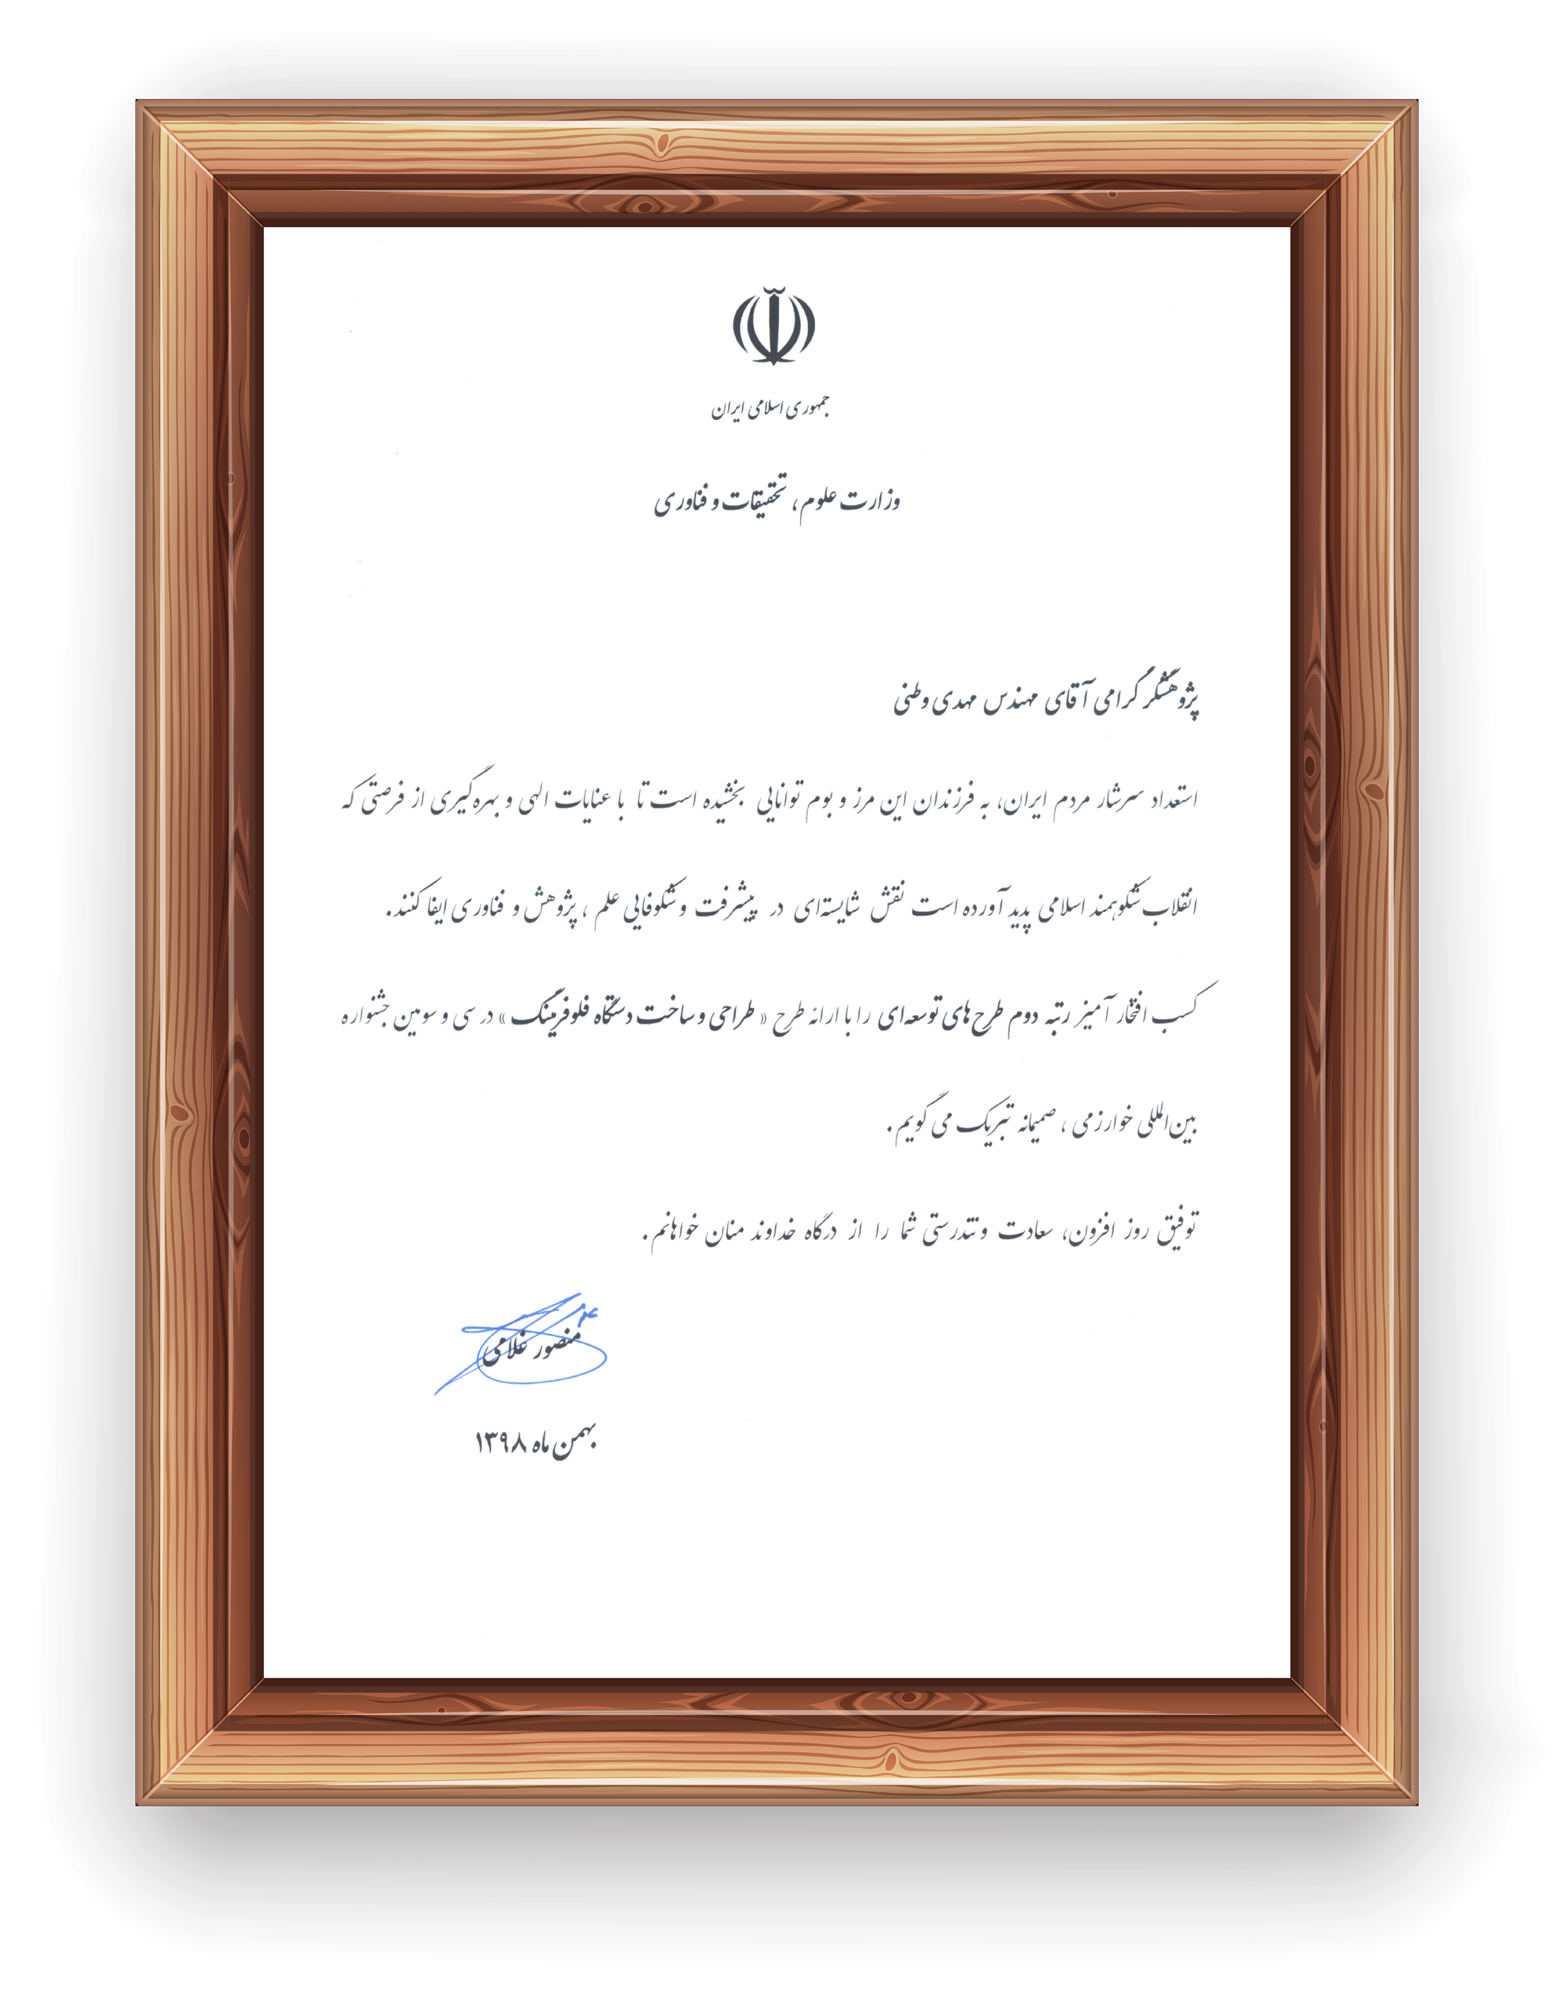 جمهوری اسلامی ایران
وزارت علوم، تحقیقات و فناوری
پژوهشگر گرامی آقای مهندس مهدی وطنی
استعداد سرشار مردم ایران، به فرزندان این مرز و بوم توانایی بخشیده است تا با عنایات الهی و بهره‌گیری از فرصتی که
انقلاب شکوهمند اسلامی پدید آورده است نقش شایسته‌ای در پیشرفت و شکوفایی علم ، پژوهش و فناوری ایفا کنند.
کسب افتخار آمیز رتبه دوم طرح های توسعه‌ای را با ارائه طرح « طراحی و ساخت دستگاه فلوفرمینگ » در سی و سومین جشنواره
بین‌المللی خوارزمی ، صمیمانه تبریک می گویم.
توفیق روز افزون، سعادت و تندرستی شما را از درگاه خداوند منان خواهانم.
منصور غلامی
بهمن ماه ۱۳۹۸